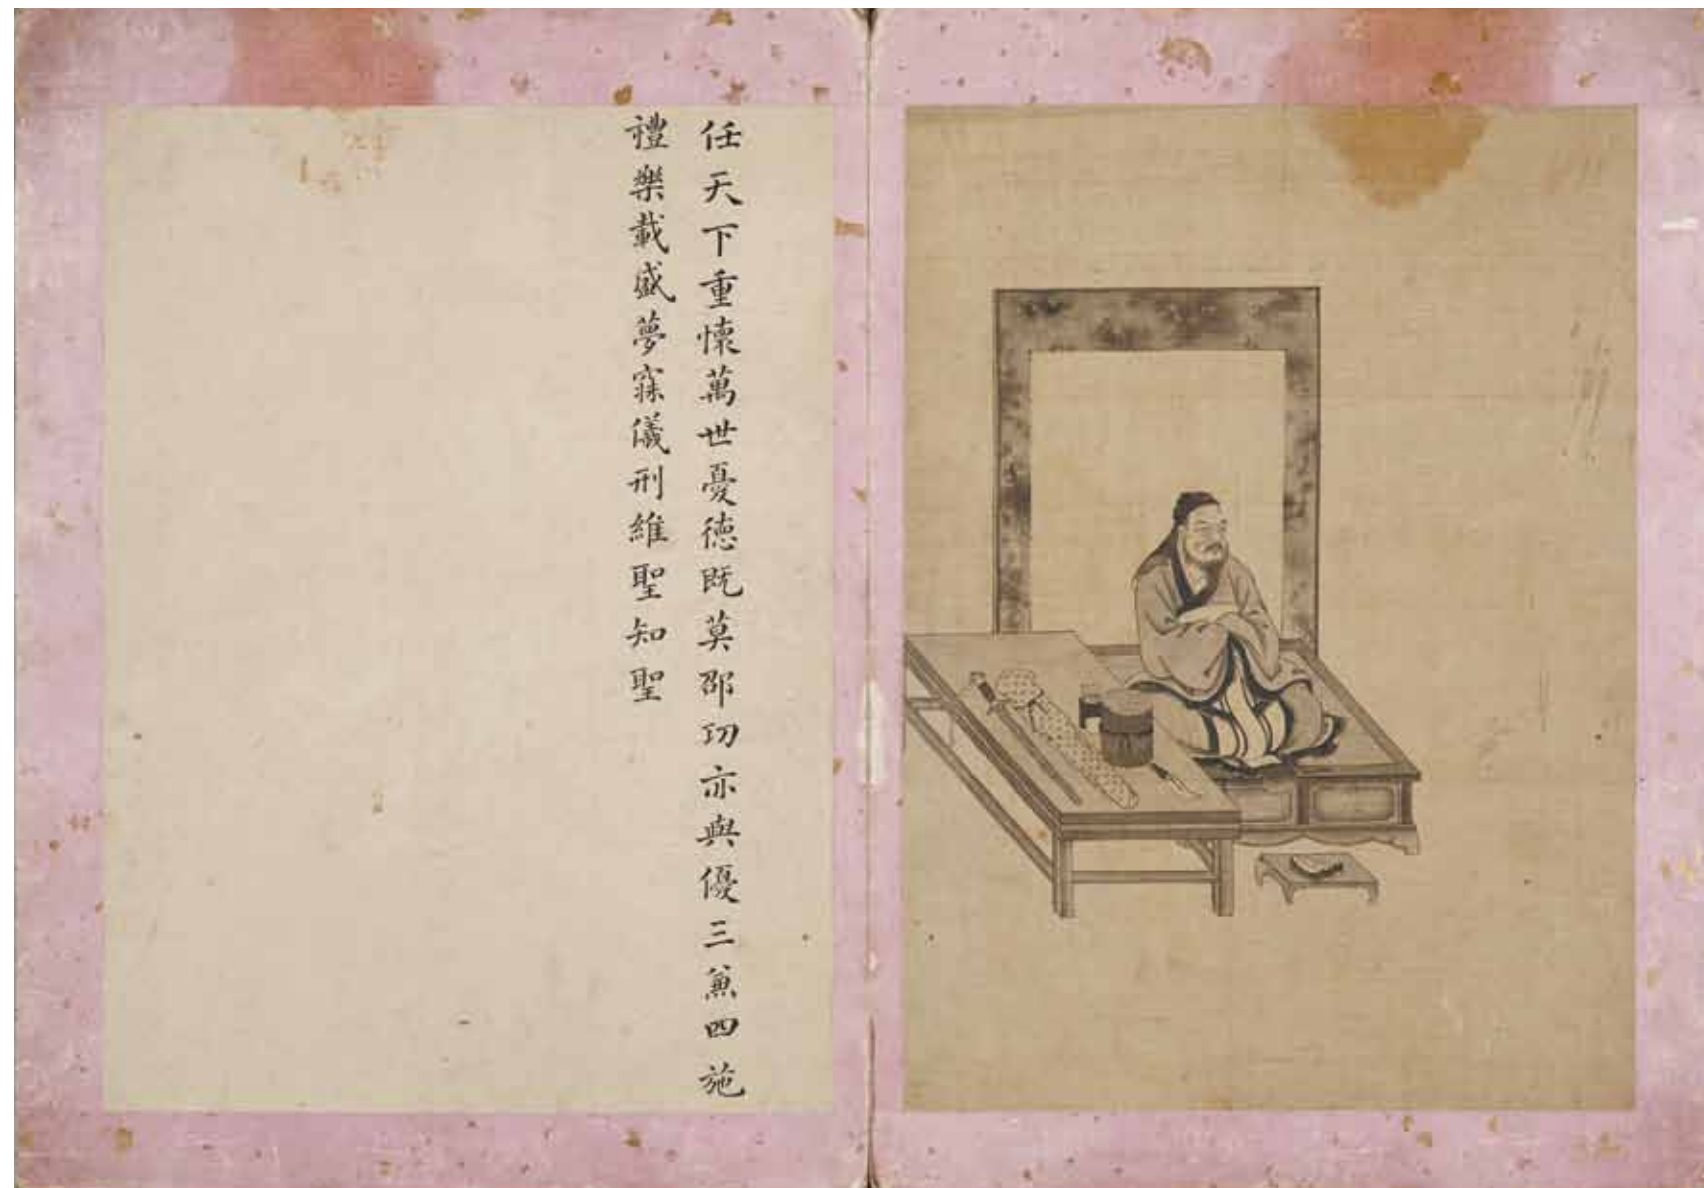 任天下重懷萬世憂德既莫邵功亦與優三兼四施
禮樂載盛夢寐儀刑維聖知聖